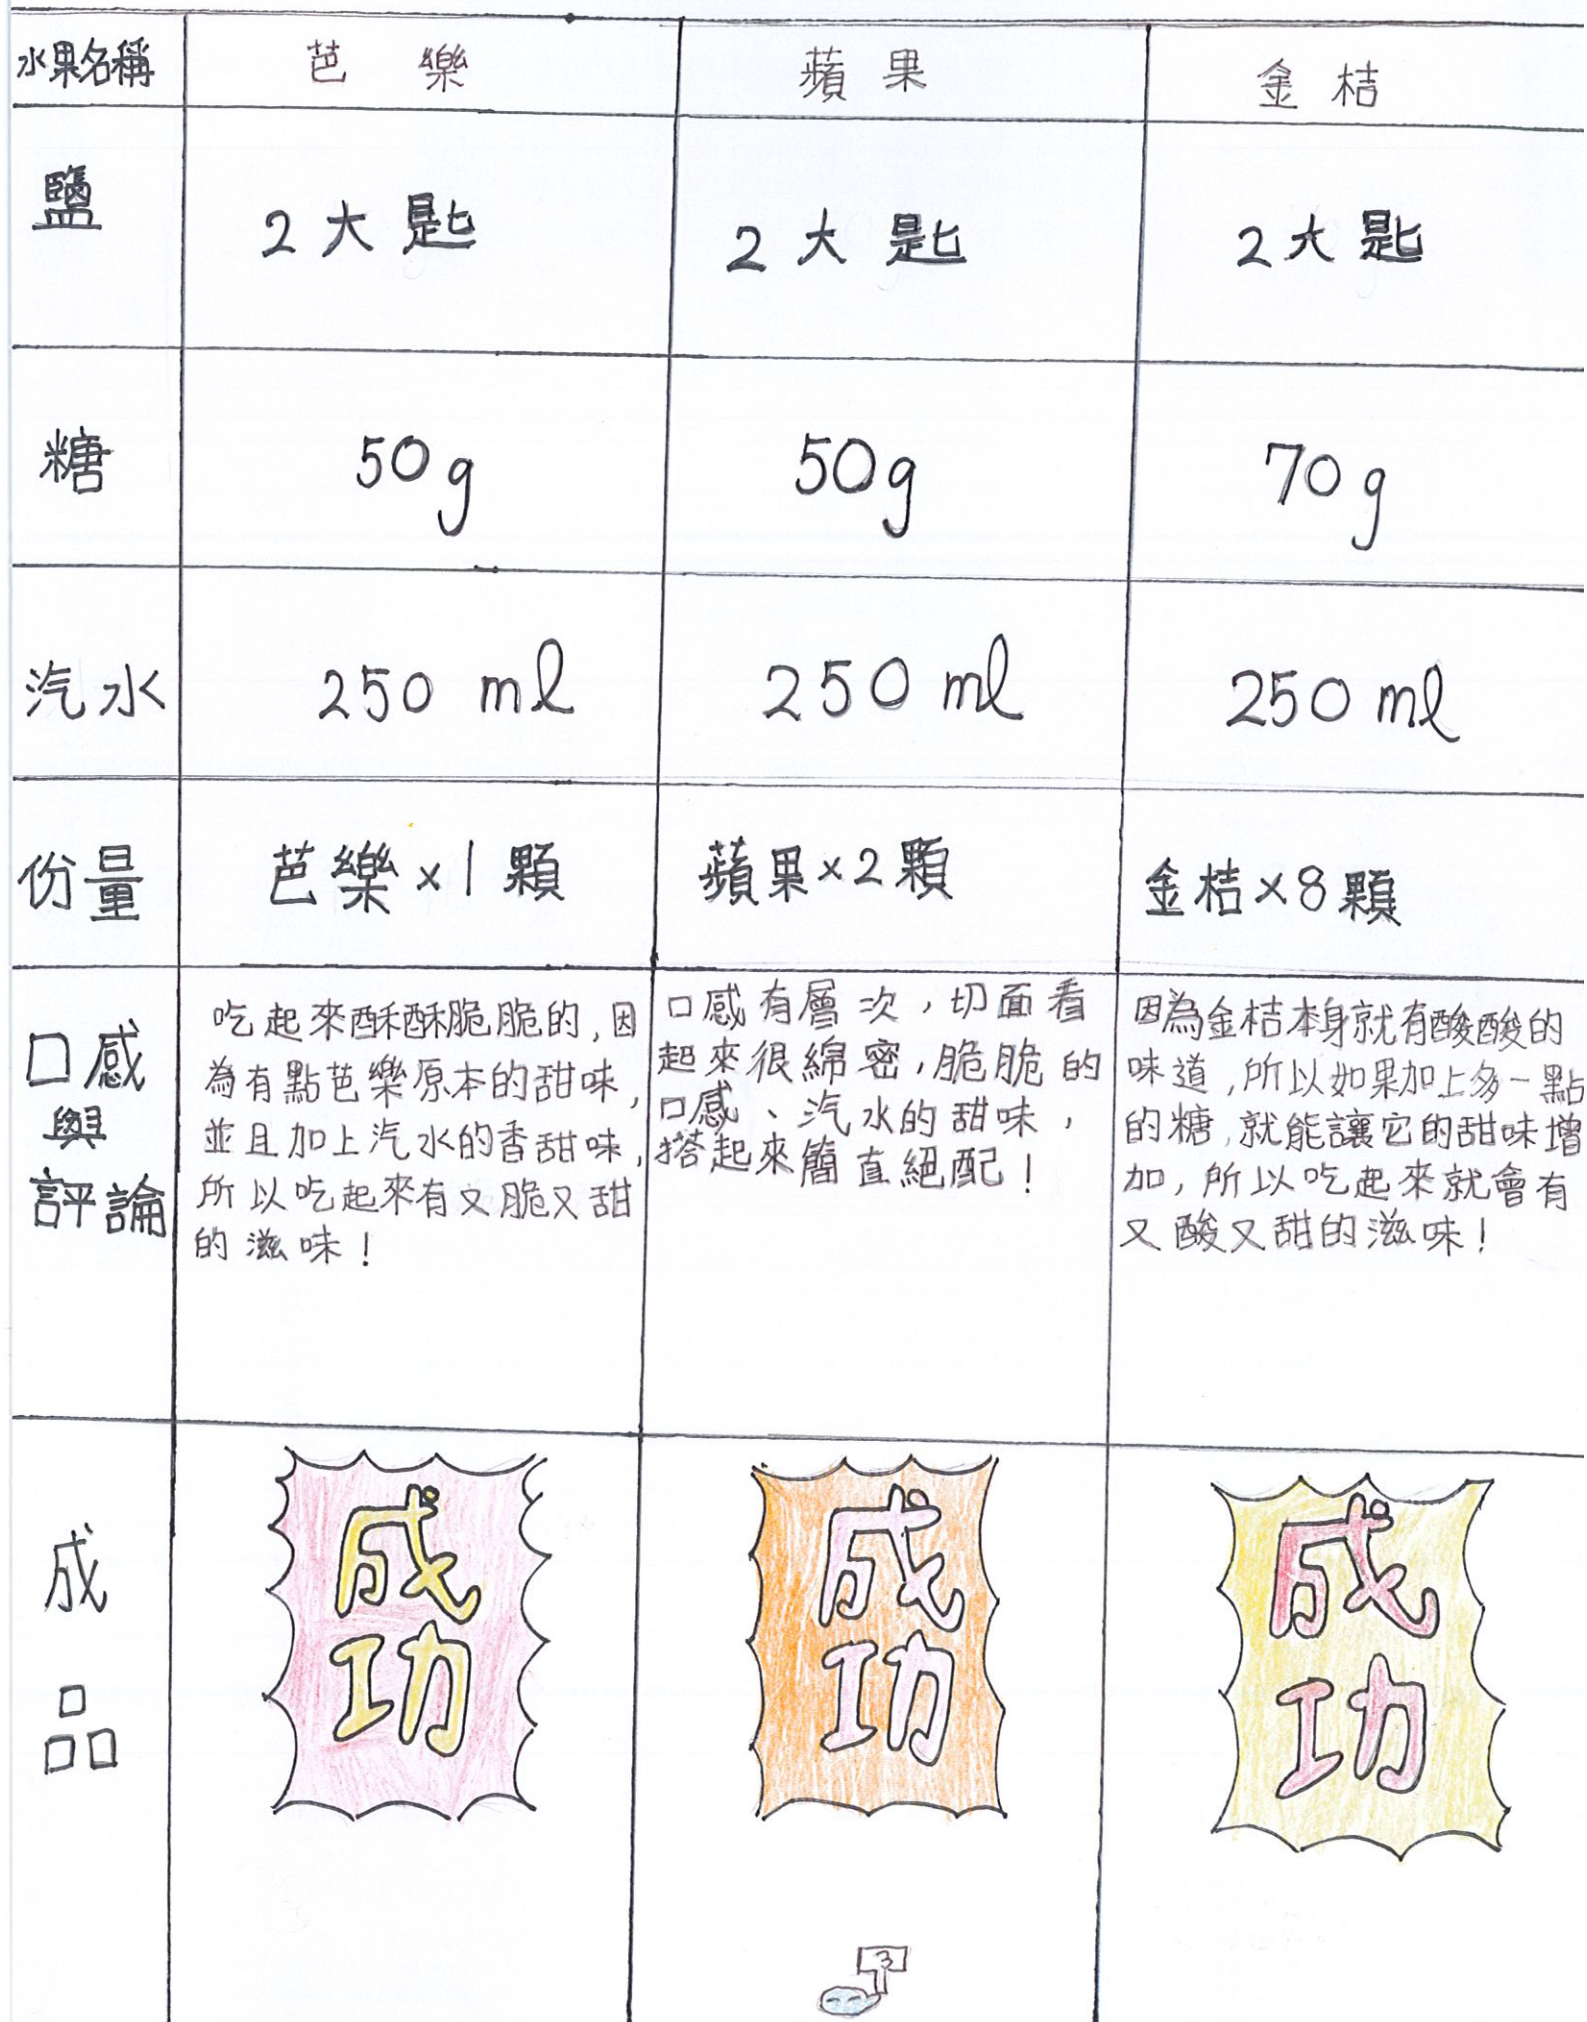 水果名稱 芭樂 蘋果 金桔
鹽 2大匙 2大匙 2大匙
糖 50g 50g 70g
汽水 250 ml 250 ml 250 ml
份量 芭樂×1顆 蘋果×2顆 金桔×8顆
口感
與
評論
吃起來酥酥脆脆的,因
為有點芭樂原本的甜味,
並且加上汽水的香甜味,
所以吃起來有又脆又甜
的滋味!
口感有層次,切面看
起來很綿密,脆脆的
口感、汽水的甜味,
搭起來簡直絕配!
因為金桔本身就有酸酸的
味道,所以如果加上多一點
的糖,就能讓它的甜味增
加,所以吃起來就會有
又酸又甜的滋味!
成
品
成
功
成
功
成
功
3